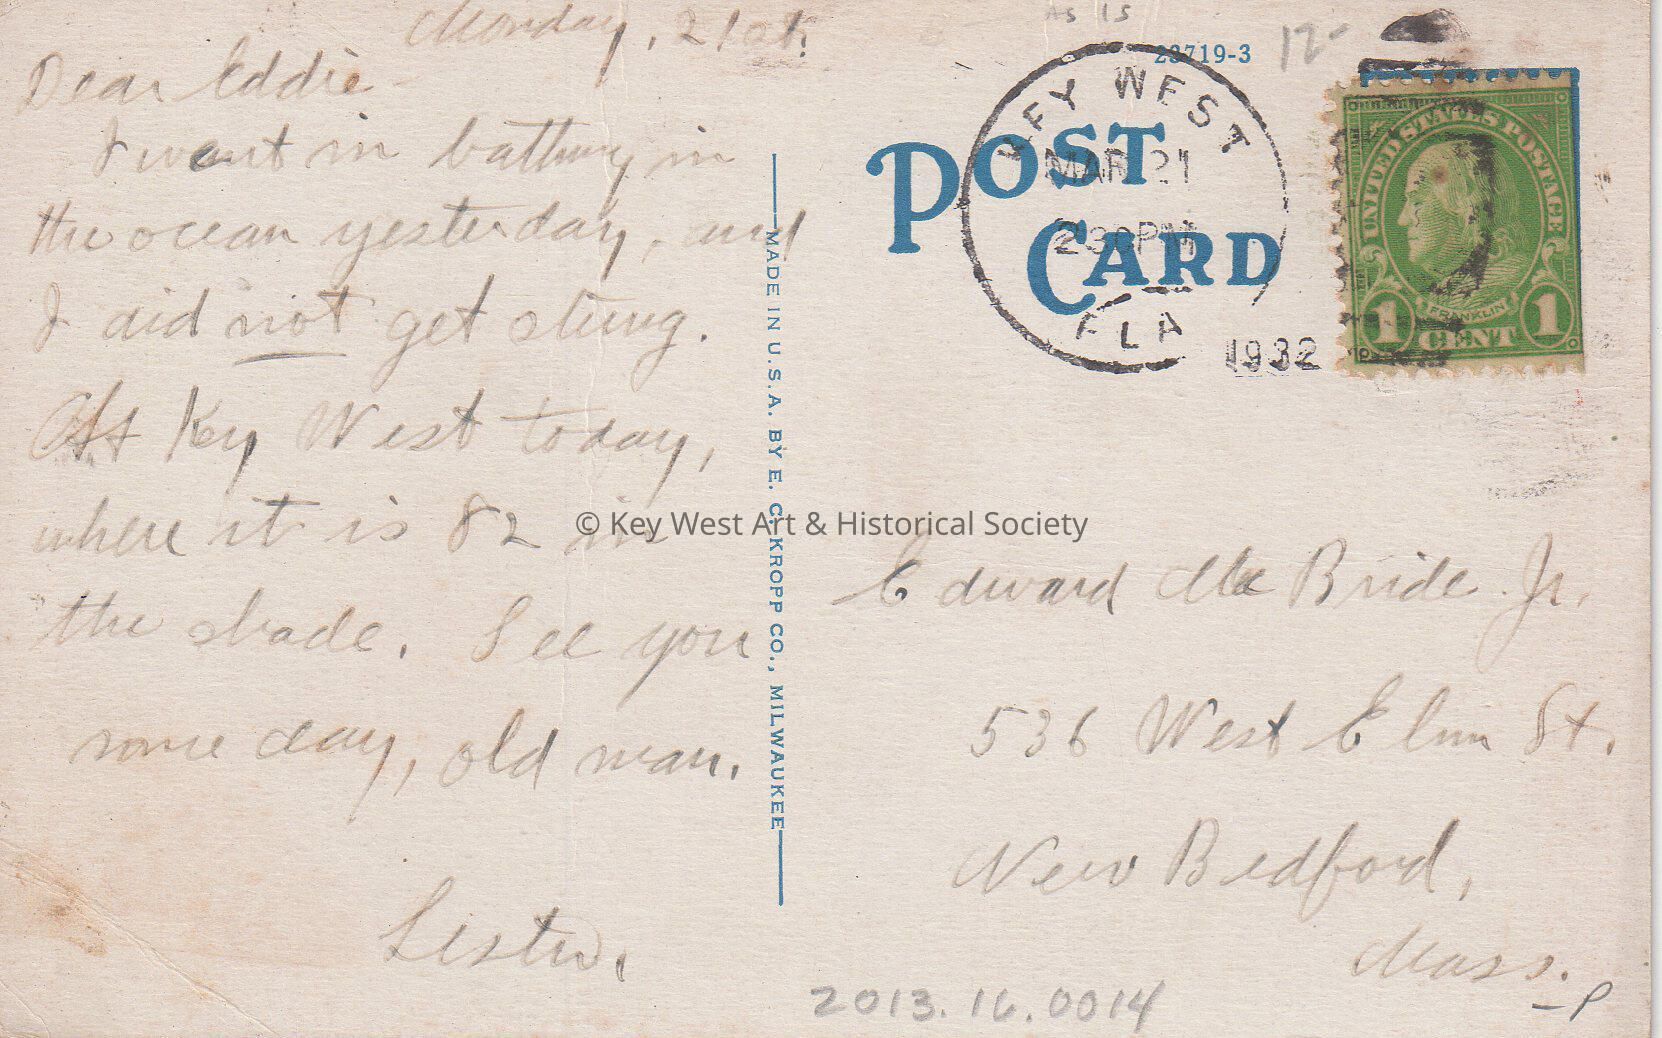 Monday, 21st.
Dear Eddie -
I went in bathing in
the ocean yesterday, and
I did not get stung.
At Key West today,
where it is 82 in
the shade. See you
some day, old man.
Lester.
MADE IN U.S.A. BY E. C. KROPP CO., MILWAUKEE
AS IS
23719-3
12-
POST
CARD
KEY WEST
MAR 21
2 30 PM
FLA
1932
UNITED STATES POSTAGE
FRANKLIN
1 CENT 1
© Key West Art & Historical Society
Edward McBride Jr.
536 West Elm St.
New Bedford,
Mass.
-P
2013.16.0014